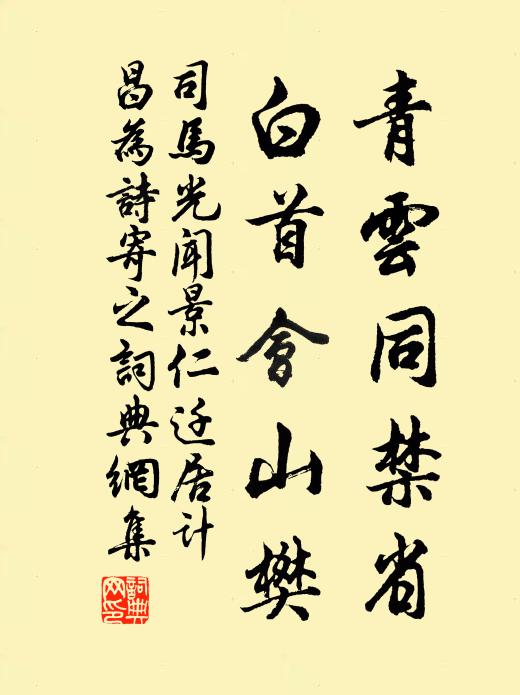 青雲同禁省
白首會山樊
司馬光聞景仁迁居計
昌為詩寄之詞典網集
詞典网印